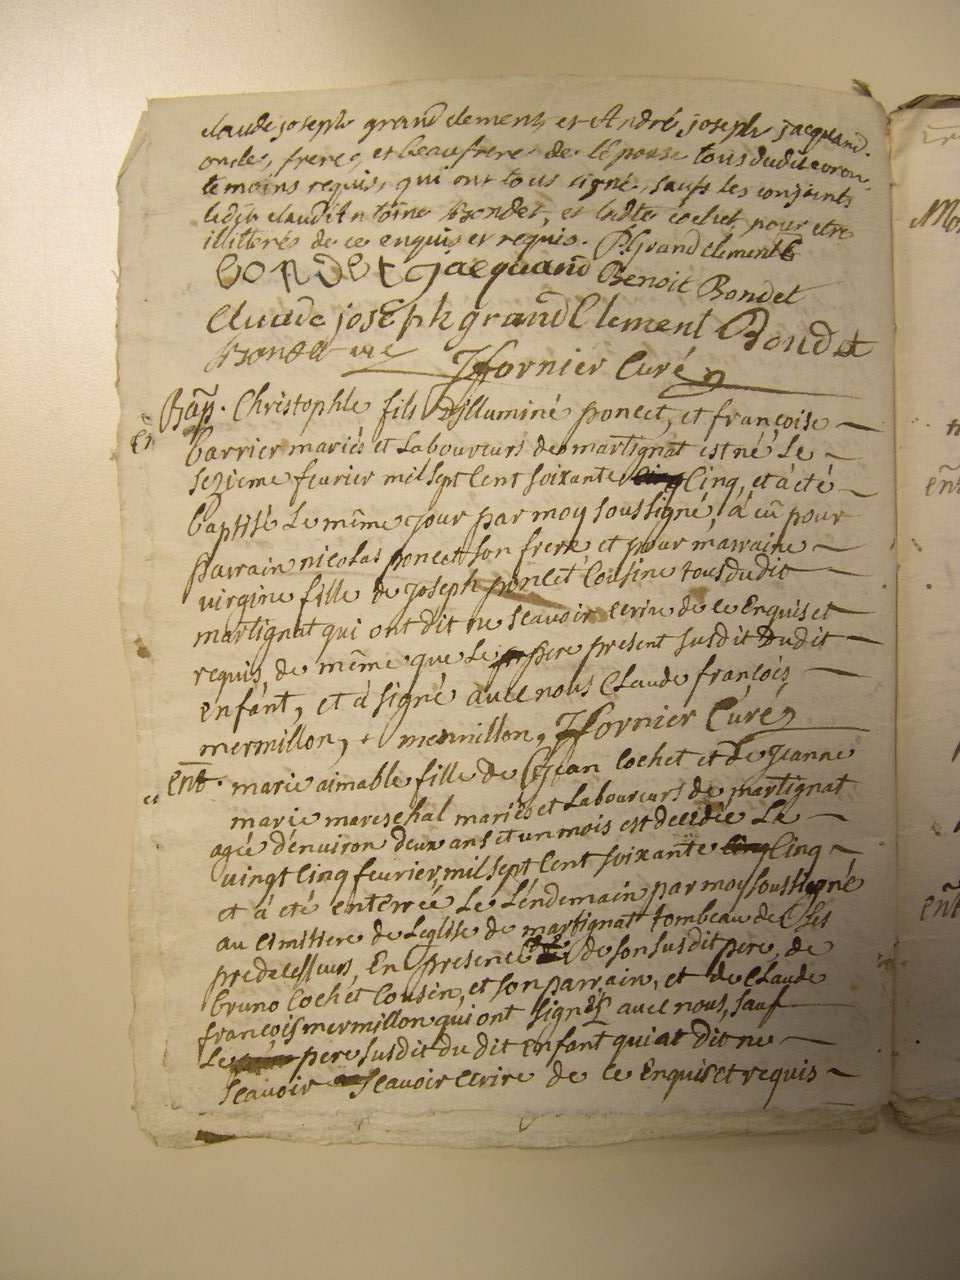 claude joseph grand clement, et André joseph jacquand.
oncle, frere, et beaufrere de lepouse tous dudit
temoins requis, qui ont tous signé, sauf les conjoints
ledit claudAntoine Bondet, et ladte cochet pour etre
illiterés de ce enquis et requis. P. Grand clement
BONDET Jacquand Benoit Bondet
Claude joseph grand Clement Bondet
Bondet vic
Jffornier Curé
Bap. Christophle fils D'illuminé poncet, et françoise
barrier mariés et Laboureurs de martignat est né Le
sezieme fevrier mil sept Cent soixante Cinq, et a été
baptisé Le même jour par moy soussigné, a eu pour
parrain nicolas poncet son frere et pour marraine
virgine fille de joseph poncet Cousine tous dudit
martignat qui ont dit ne scavoir ecrire de ce Enquis et
requis, de même que Le pere present susdit Dudit
enfant, et a signé avec nous Claude françois
mermillon, + mermillon, Jffornier Curé
ent. marie aimable fille de jean Cochet et de jeanne
marie mareschal mariés et Laboureurs de martignat
agée d'environ deux ans et un mois est decedée Le
vingt Cinq fevrier, mil sept Cent soixante Cinq
et a été enterrée Le Lendemain par moy soussigné
au Cimitiere de Leglise de martignat tombeau de Ses
predecesseurs, En presence de son susdit pere, de
bruno Cochet Cousin, et son parrain, et de Claude
françois mermillon qui ont signés avec nous, sauf
Le pere susdit du dit enfant qui at dit ne
scavoir scavoir ecrire de ce Enquis et requis